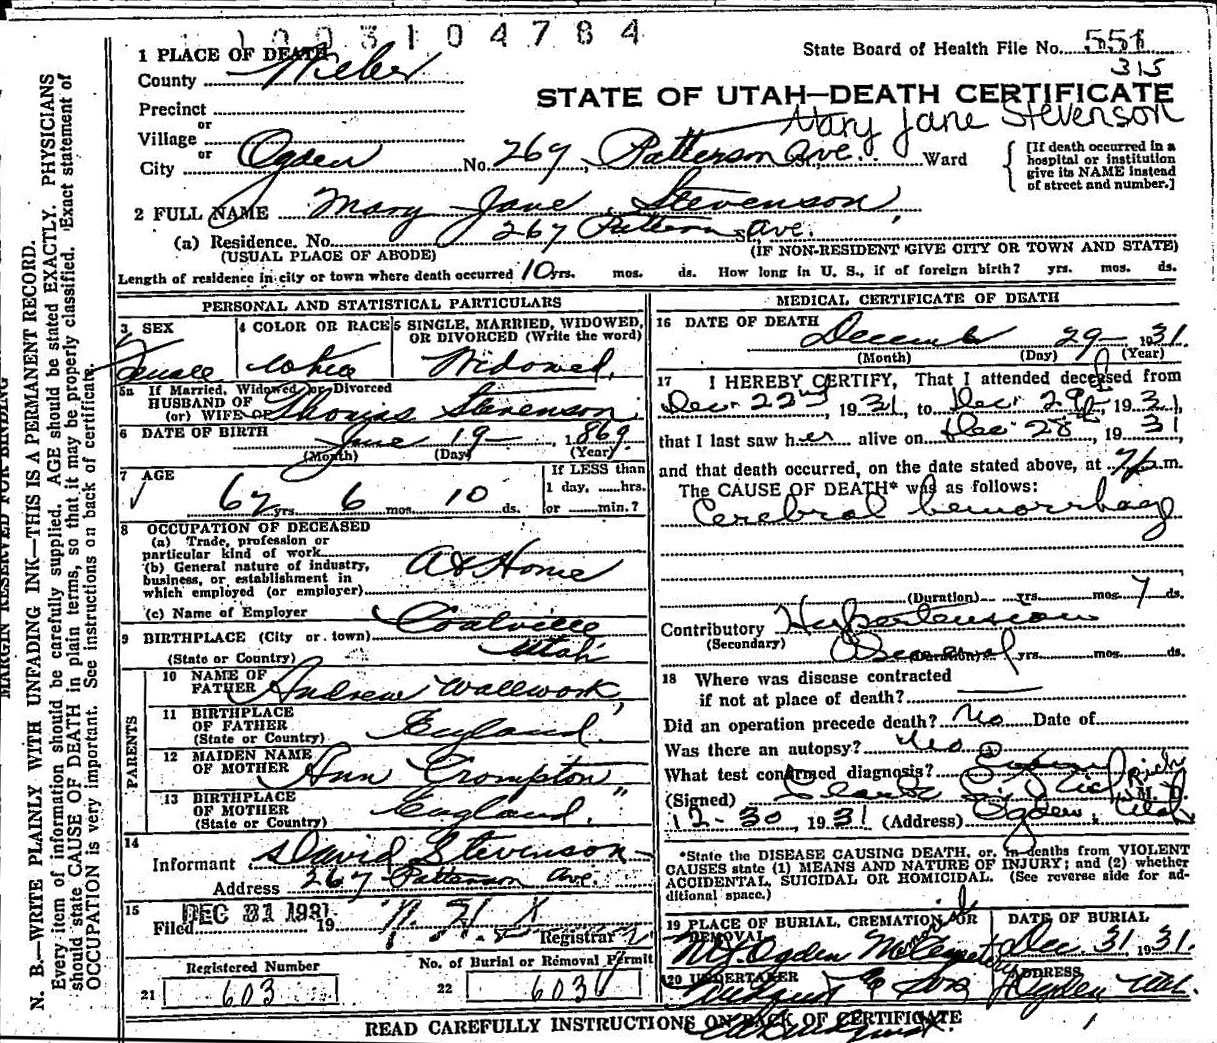 1 0 0 3 1 0 4 7 8 4
State Board of Health File No. 551
315
1 PLACE OF DEATH
County Weber
STATE OF UTAH—DEATH CERTIFICATE
Mary Jane Stevenson
Precinct
or
Village
or
City Ogden No. 267 Patterson Ave. Ward
[If death occurred in a hospital or institution give its NAME instead of street and number.]
2 FULL NAME Mary Jane Stevenson
(a) Residence. No. 267 Patterson St. Ave.
(USUAL PLACE OF ABODE) (IF NON-RESIDENT GIVE CITY OR TOWN AND STATE)
Length of residence in city or town where death occurred 10 yrs. mos. ds. How long in U. S., if of foreign birth? yrs. mos. ds.
PERSONAL AND STATISTICAL PARTICULARS
3 SEX Female
4 COLOR OR RACE White
5 SINGLE, MARRIED, WIDOWED, OR DIVORCED (Write the word) Widowed
5a If Married, Widowed or Divorced
HUSBAND OF
(or) WIFE OF Thomas Stevenson
6 DATE OF BIRTH June 19 1869
(Month) (Day) (Year)
7 AGE
62 yrs 6 mos 10 ds.
If LESS than
1 day, ......hrs.
or ......min.?
8 OCCUPATION OF DECEASED
(a) Trade, profession or
particular kind of work
(b) General nature of industry,
business, or establishment in
which employed (or employer)
At Home
(c) Name of Employer
9 BIRTHPLACE (City or town) Coalville
(State or Country) Utah
PARENTS
10 NAME OF FATHER Andrew Wallwork
11 BIRTHPLACE OF FATHER
(State or Country) England
12 MAIDEN NAME OF MOTHER Ann Crompton
13 BIRTHPLACE OF MOTHER
(State or Country) England
14
Informant David Stevenson
Address 267 Patterson Ave.
15
Filed DEC 31 1931 19
Registrar
Registered Number
21 603
No. of Burial or Removal Permit
22 603
MEDICAL CERTIFICATE OF DEATH
16 DATE OF DEATH
December 29 1931
(Month) (Day) (Year)
17 I HEREBY CERTIFY, That I attended deceased from
Dec. 22nd, 1931, to Dec. 29th, 1931,
that I last saw her alive on Dec 28th, 1931
and that death occurred, on the date stated above, at 7 p.m.
The CAUSE OF DEATH* was as follows:
Cerebral hemorrhage
(Duration) yrs. mos. 7 ds.
Contributory Hypertension
(Secondary)
Several (Duration) yrs. mos. ds.
18 Where was disease contracted
if not at place of death?
Did an operation precede death? No Date of
Was there an autopsy? No
What test confirmed diagnosis?
(Signed) Clark Rich M. D.
12-30, 1931 (Address) Ogden, Utah
*State the DISEASE CAUSING DEATH, or, in deaths from VIOLENT
CAUSES state (1) MEANS AND NATURE OF INJURY; and (2) whether
ACCIDENTAL, SUICIDAL OR HOMICIDAL. (See reverse side for ad-
ditional space.)
19 PLACE OF BURIAL, CREMATION, OR REMOVAL
DATE OF BURIAL
Ogden Cemetery Dec. 31 1931.
20 UNDERTAKER
& Sons
ADDRESS
Ogden Utah.
READ CAREFULLY INSTRUCTIONS ON BACK OF CERTIFICATE
MARGIN RESERVED FOR BINDING
N. B.—WRITE PLAINLY WITH UNFADING INK—THIS IS A PERMANENT RECORD.
Every item of information should be carefully supplied. AGE should be stated EXACTLY. PHYSICIANS
should state CAUSE OF DEATH in plain terms, so that it may be properly classified. Exact statement of
OCCUPATION is very important. See instructions on back of certificate.